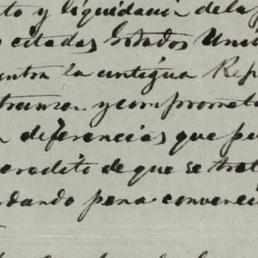 to y liquidacion de la
citadas Estados Uni
entra la antigua Rep
transen y compromet
diferencias que pu
credito de que se trat
dando para convenci